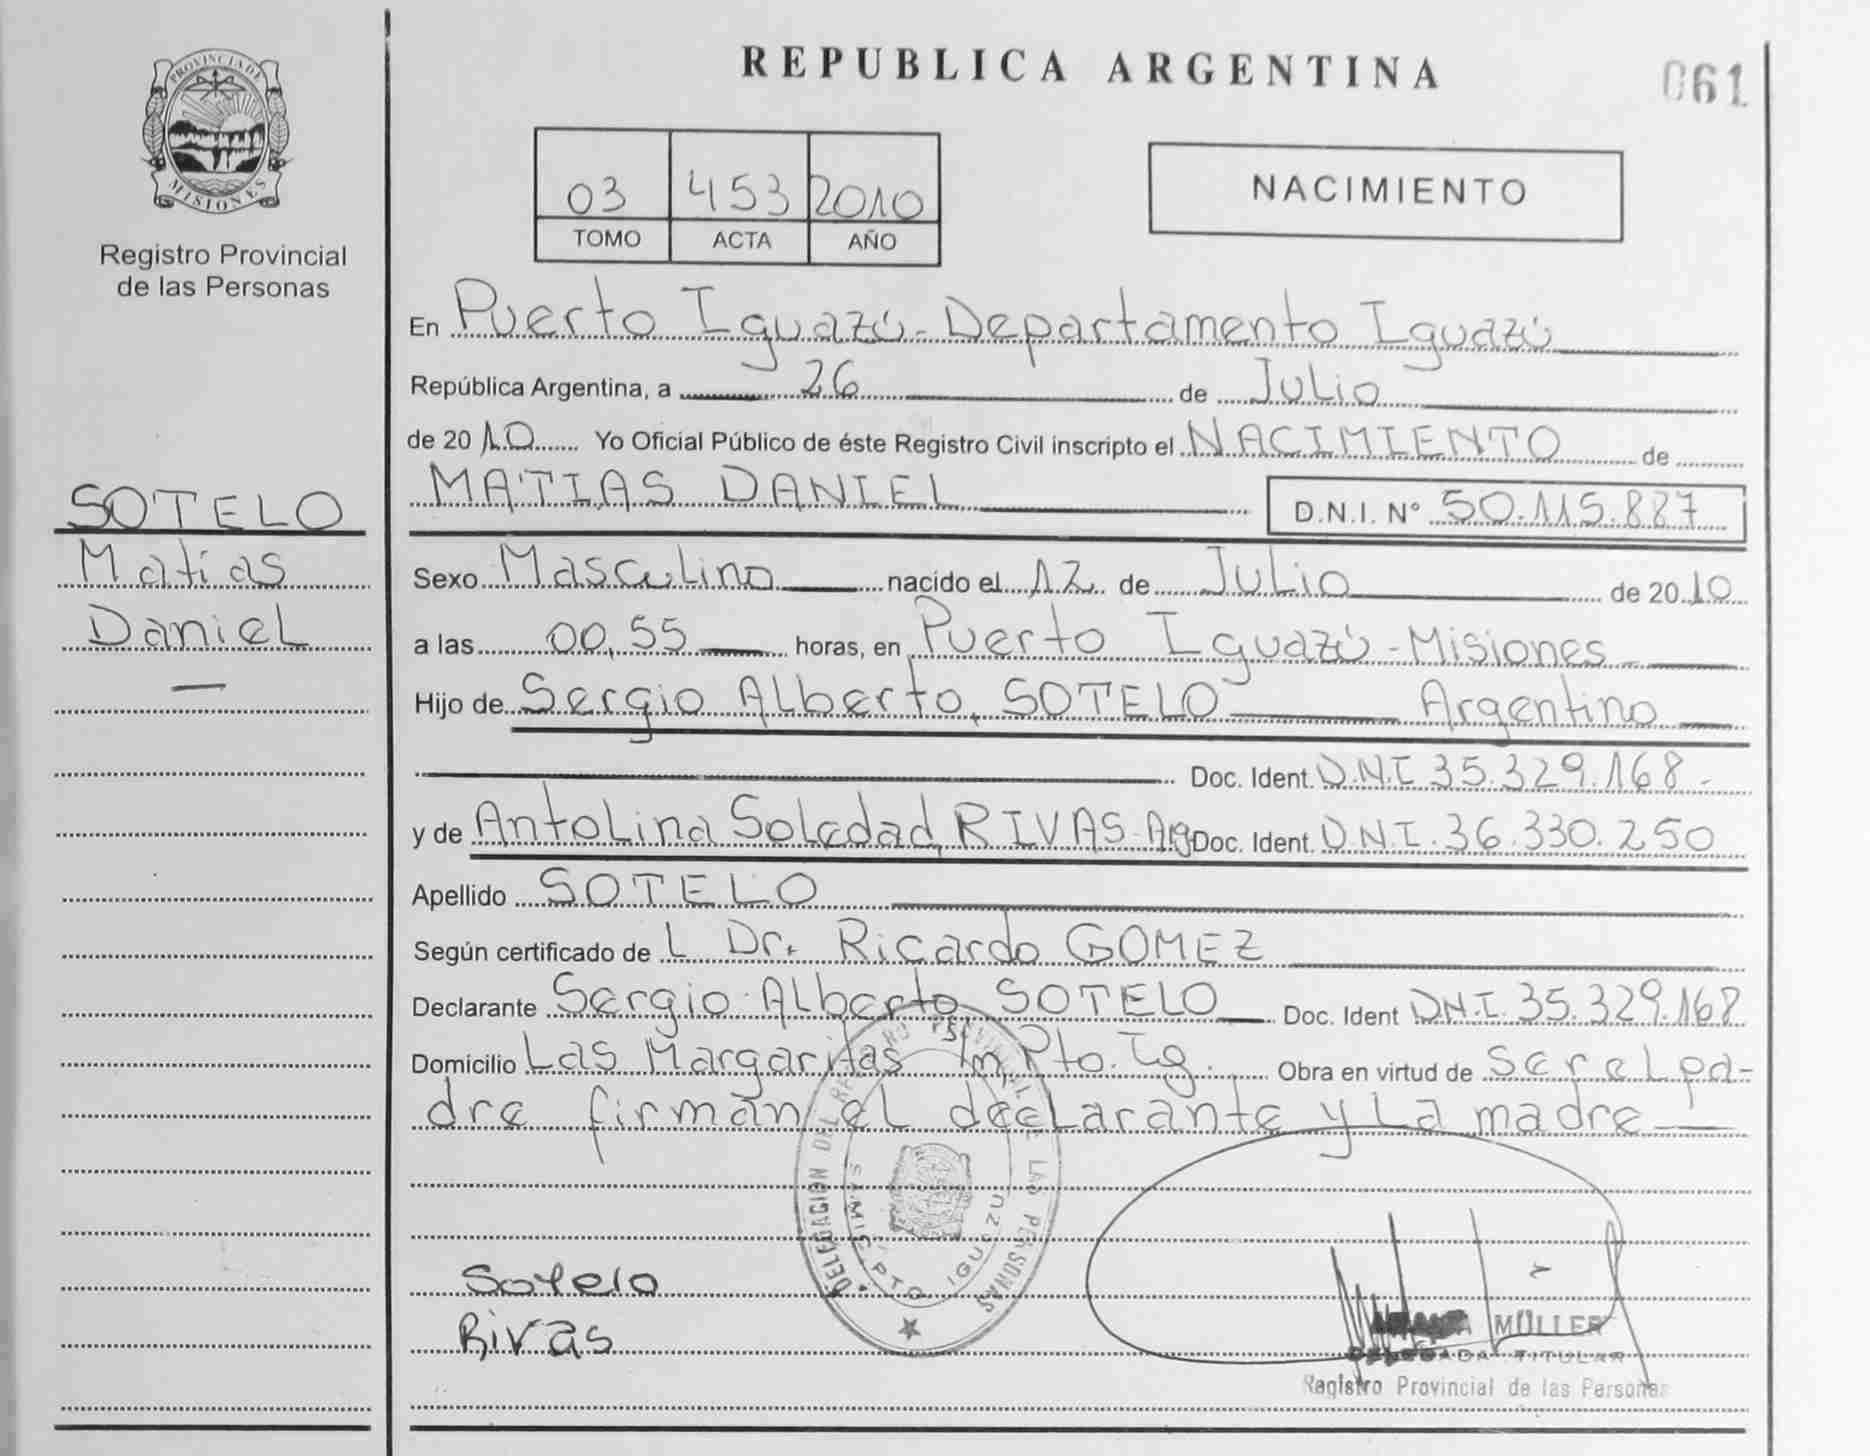 REPUBLICA ARGENTINA
061
PROVINCIA DE
MISIONES
Registro Provincial
de las Personas
03 453 2010
TOMO ACTA AÑO
NACIMIENTO
En Puerto Iguazú - Departamento Iguazú
República Argentina, a 26 de Julio
de 2010 Yo Oficial Público de éste Registro Civil inscripto el NACIMIENTO de
MATIAS DANIEL D.N.I. N° 50.115.887
SOTELO
Matías
Daniel
Sexo Masculino nacido el 12 de Julio de 2010
a las 00,55 horas, en Puerto Iguazú - Misiones
Hijo de Sergio Alberto, SOTELO Argentino
Doc. Ident. D.N.I 35.329.168-
y de Antolina Soledad, RIVAS - Arg Doc. Ident. D.N.I. 36.330.250
Apellido SOTELO
Según certificado de L Dr. Ricardo GOMEZ
Declarante Sergio Alberto, SOTELO Doc. Ident D.N.I. 35.329.168
Domicilio Las Margaritas Pto. Ig. Obra en virtud de ser el pa-
dre firman el declarante y La madre
DELEGACION DEL REGISTRO PROVINCIAL DE LAS PERSONAS
PTO IGUAZU
Sotelo
Rivas
MÜLLER
DELEGADA TITULAR
Registro Provincial de las Personas